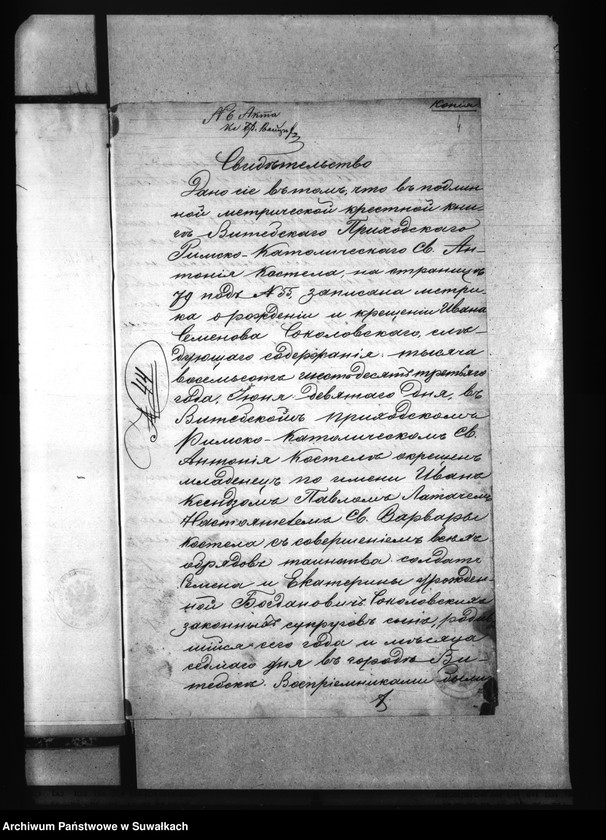 Копія
4
№ 6 Акта
Свидѣтельство
Дано сіе въ томъ, что въ подлин-
ной метрической крестной кни-
гѣ Витебскаго Приходскаго
Римско-Католическаго Св. Ан-
тонія костела, на страницѣ
79 подъ № 55, записана метри-
ка о рожденіи и крещеніи Ивана
Семенова Соколовскаго, слѣ-
дующаго содержанія: тысяча
восемьсотъ шестьдесятъ третьяго
года, Іюня Девятаго Дня, въ
Витебскомъ приходскомъ
Римско-католическомъ Св.
Антонія Костелѣ окрещенъ
младенецъ по имени Ивана
Ксендзомъ Павломъ
Настоятелемъ Св. Варвары
костела съ совершеніемъ всѣхъ
обрядовъ таинства. солдата
Семена и Екатерины урожден-
ной Богдановичъ Соколовскихъ
законныхъ супруговъ сынъ, родив
шійся сего года и мѣсяца
седмаго дня въ городѣ Ви-
тебскѣ. Воспріемниками были
№ 44
Archiwum Państwowe w Suwałkach